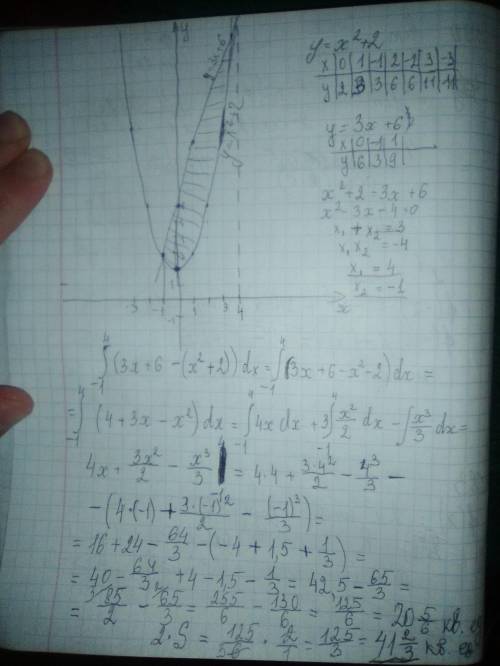 y = x²+2
x | 0 | 1 | -1 | 2 | -2 | 3 | -3
y | 2 | 3 | 3 | 6 | 6 | 11 | 11
y = 3x+6
x | 0 | -1 | 1
y | 6 | 3 | 9
x²+2=3x+6
x²-3x-4=0
x₁+x₂=3
x₁x₂=-4
x₁=4
x₂=-1
y
y=x²+2
-3 -1 1 3 4
x
∫₋₁⁴(3x+6-(x²+2))dx=∫₋₁⁴(3x+6-x²-2)dx=
=∫₋₁⁴(4+3x-x²)dx=∫₋₁⁴4x dx+3∫₋₁⁴x²/2 dx-∫x³/3 dx=
4x+3x²/2-x³/3|⁴=4·4+3·4²/2-4³/3-
-(4·(-1)+3·(-1)²/2-(-1)³/3)=
=16+24-64/3-(-4+1,5+1/3)=
=40-64/3+4-1,5-1/3=42,5-65/3=
=85/2-65/3=255/6-130/6=125/6=20 5/6 кв. ед
2·S=125/6·2/1=125/3=41 2/3 кв. ед